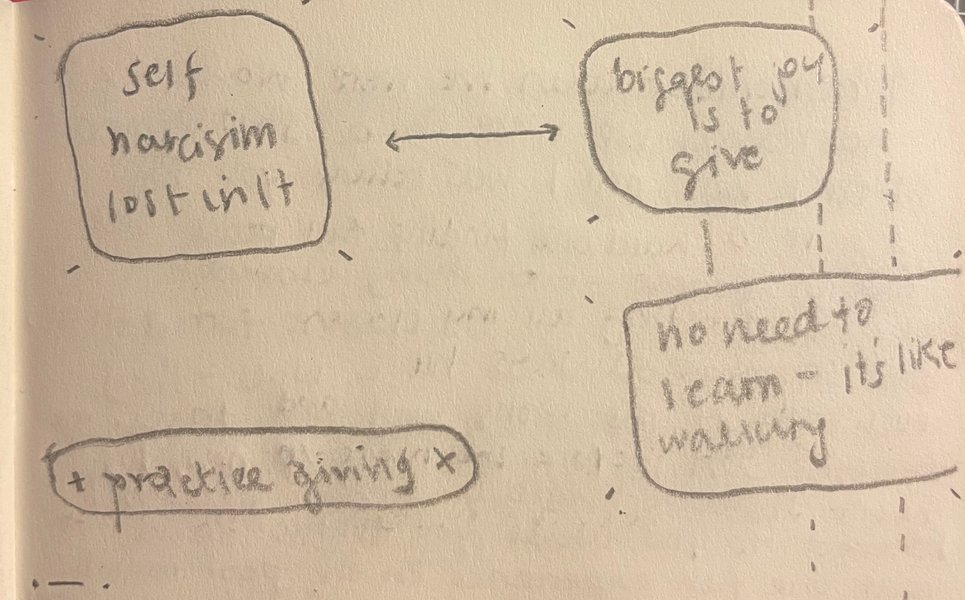 self
narcisim
lost in it
biggest joy
is to
give
no need to
learn - it's like
walking
+ practice giving x